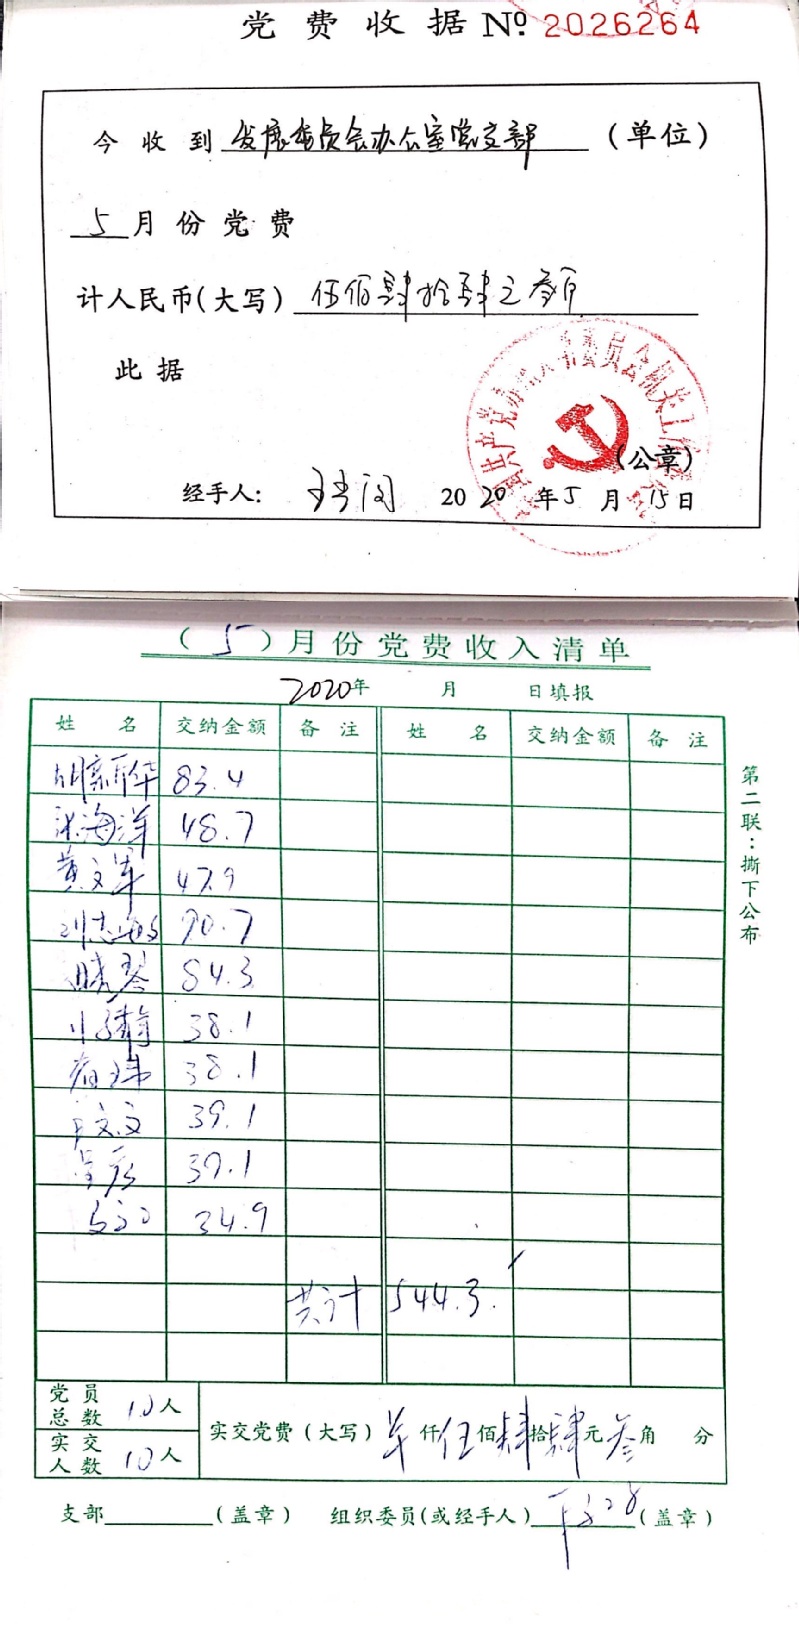 党费收据 № 2026264
今收到 发展委员会办公室党支部 (单位)
5 月份党费
计人民币(大写) 伍佰肆拾肆元叁角
此据
(公章)
经手人: 2020 年 5 月 15 日
(5) 月份党费收入清单
2020 年 月 日填报
姓名 交纳金额 备注 姓名 交纳金额 备注
胡新华 83.4
张海洋 48.7
黄文军 47.9
90.7
84.3
38.1
38.1
文文 39.1
39.1
34.9
共计 544.3.
党员总数 10人
实交人数 10人
实交党费(大写) 仟伍佰肆拾肆元叁角 分
支部 (盖章) 组织委员(或经手人) (盖章)
第二联:撕下公布